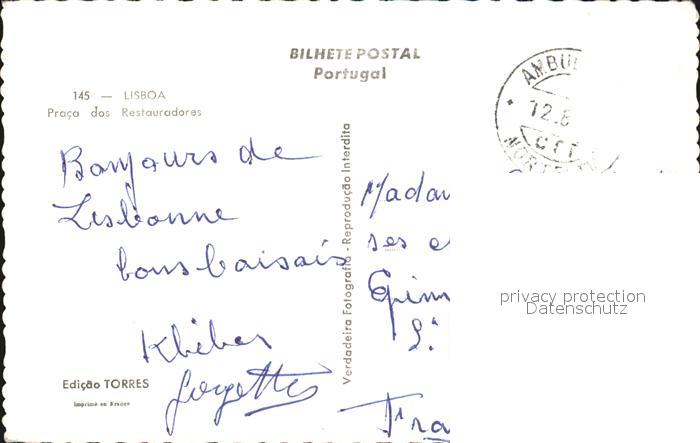 BILHETE POSTAL
Portugal
145 — LISBOA
Praça dos Restauradores
AMBUL
12.8
CTT
NORTE
Bonjours de
Lisbonne
bons baisais
Kléber
Georgette
Edição TORRES
Imprimé en France
Verdadeira Fotografia - Reprodução Interdita
Madam
ses e
Fra
privacy protection
Datenschutz